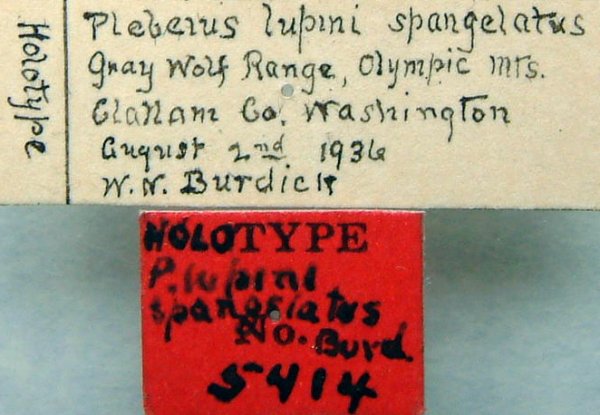 Holotype
Plebeius lupini spangelatus
Gray Wolf Range, Olympic Mts.
Clallam Co. Washington
August 2nd 1936
W. N. Burdick
HOLOTYPE
P. lupini
spangelatus
No. Burd.
5414